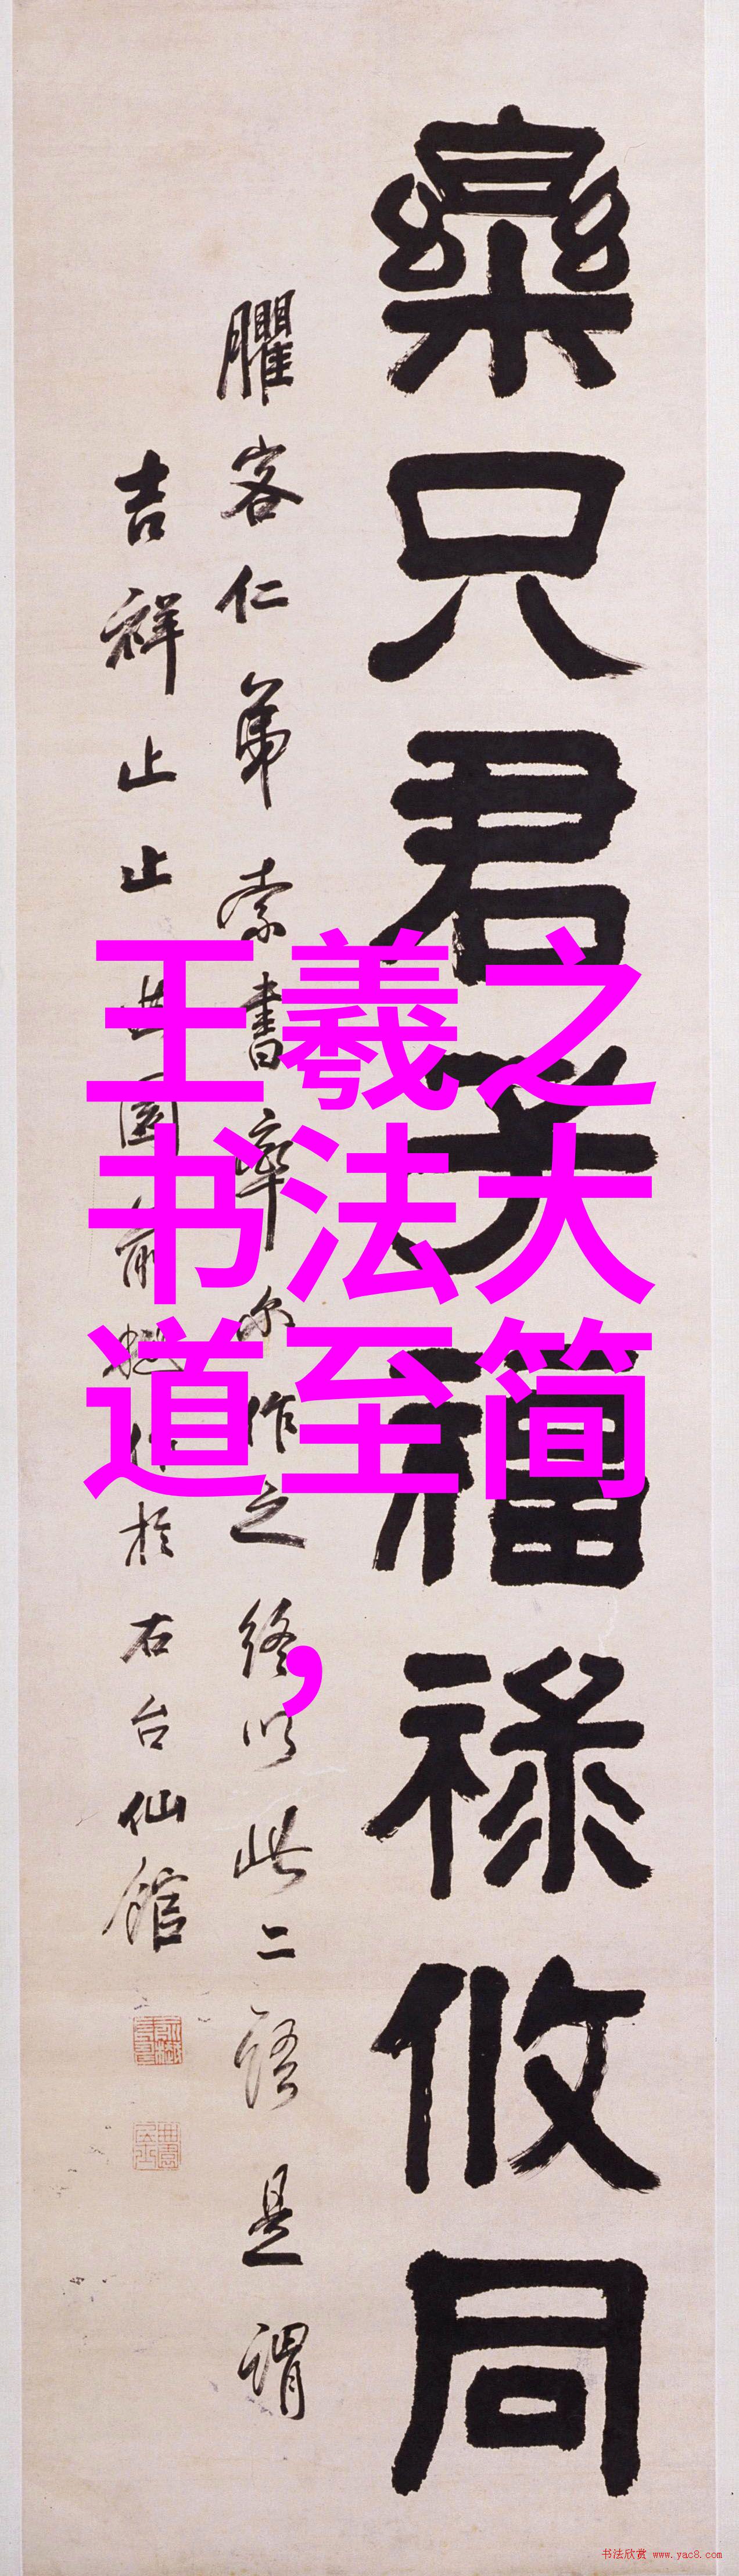 王羲之
书法大
道至简
，
樂只君子福祿攸同
臞客仁弟索書率尔作之終以此二語是謂
吉祥止止曲園俞樾於右台仙館
书法欣赏 www.yac8.com